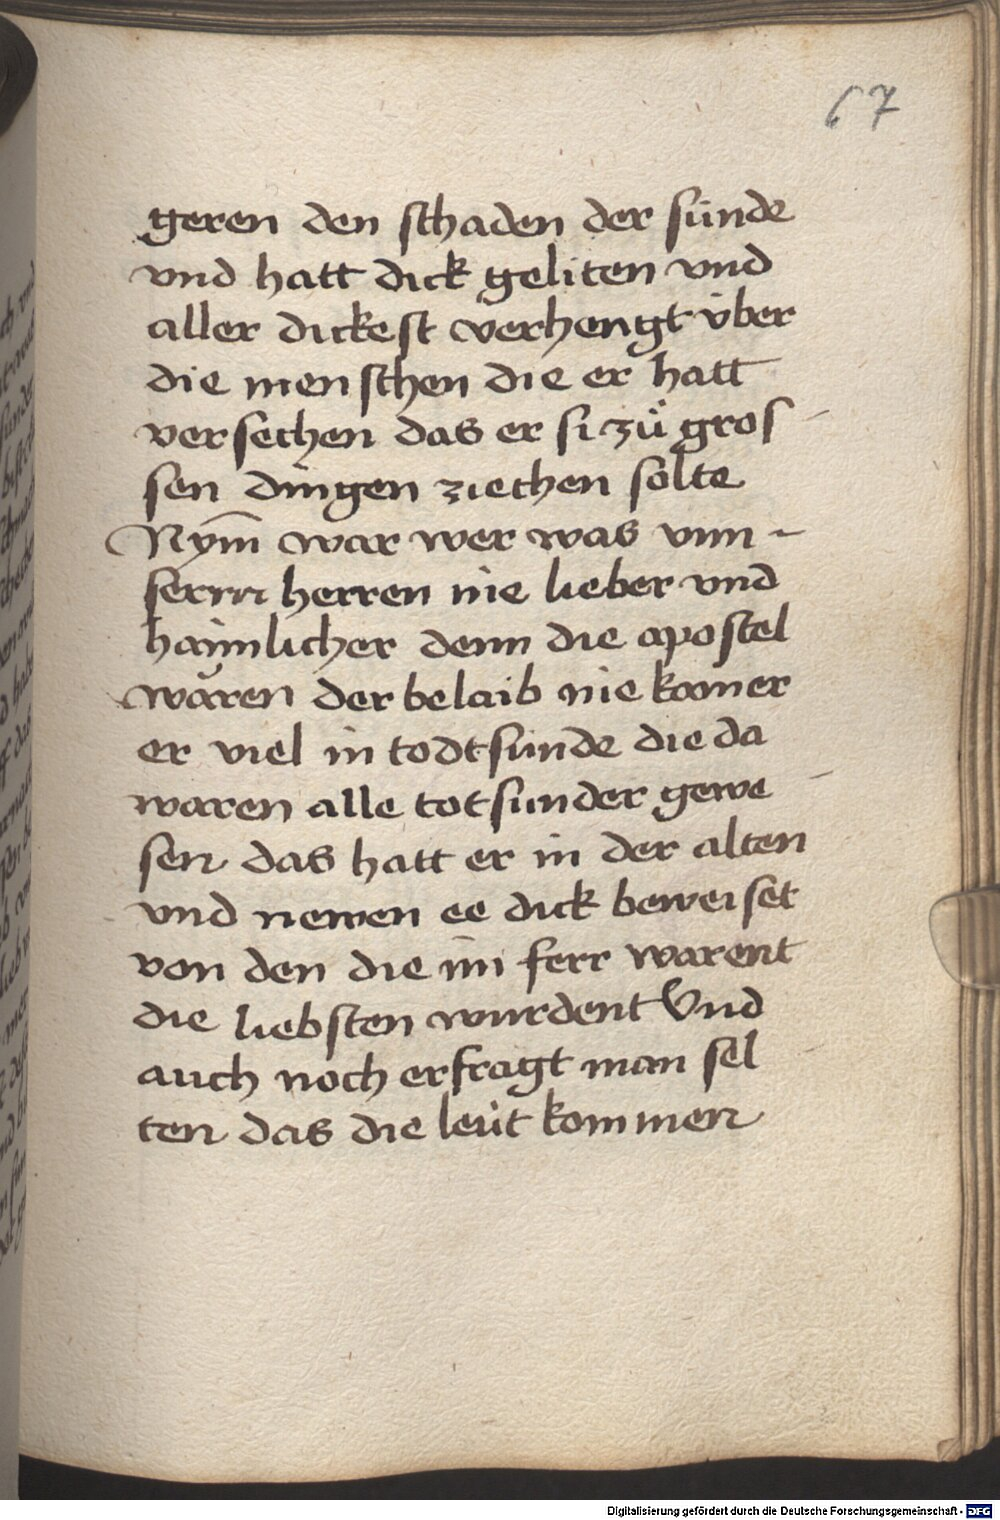 67
geren den schaden der sünde
vnd hatt dick geliten vnd
aller dickest verhengt über
die menschen die er hatt
versechen das er si zů gros
sen dingen ziechen sölte
Nym̄ war wer was vnn-
serm herren nie lieber vnd
haimlicher denn die apostel
wăren der belaib nie kainer
er viel in todtsünde die da
waren alle totsunder gewe
sen das hatt er in der alten
vnd newen ee dick beweiset
von den die im ferr warent
die liebsten wurdent Vnd
auch noch erfragt man sel
ten das die leüt kommen
Digitalisierung gefördert durch die Deutsche Forschungsgemeinschaft - DFG